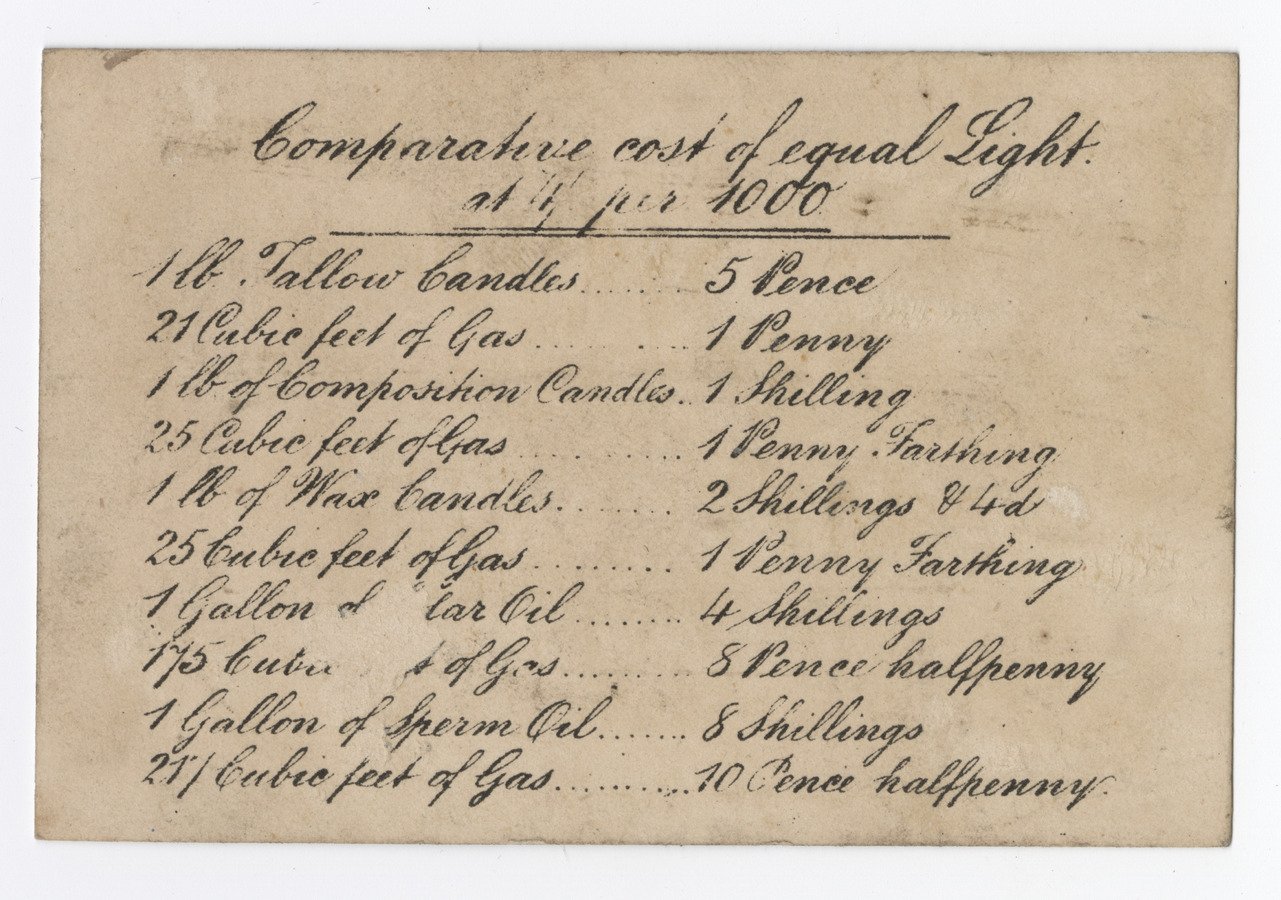 Comparative cost of equal Light.
at per 1000
1 lb Tallow Candles........ 5 Pence
21 Cubic feet of Gas........ 1 Penny
1 lb of Composition Candles.. 1 Shilling
25 Cubic feet of Gas........... 1 Penny Farthing
1 lb of Wax Candles......... 2 Shillings & 4d
25 Cubic feet of Gas......... 1 Penny Farthing
1 Gallon Oil........ 4 Shillings
175 of Gas.......... 8 Pence halfpenny
1 Gallon of Sperm Oil....... 8 Shillings
Cubic feet of Gas...........10 Pence halfpenny.